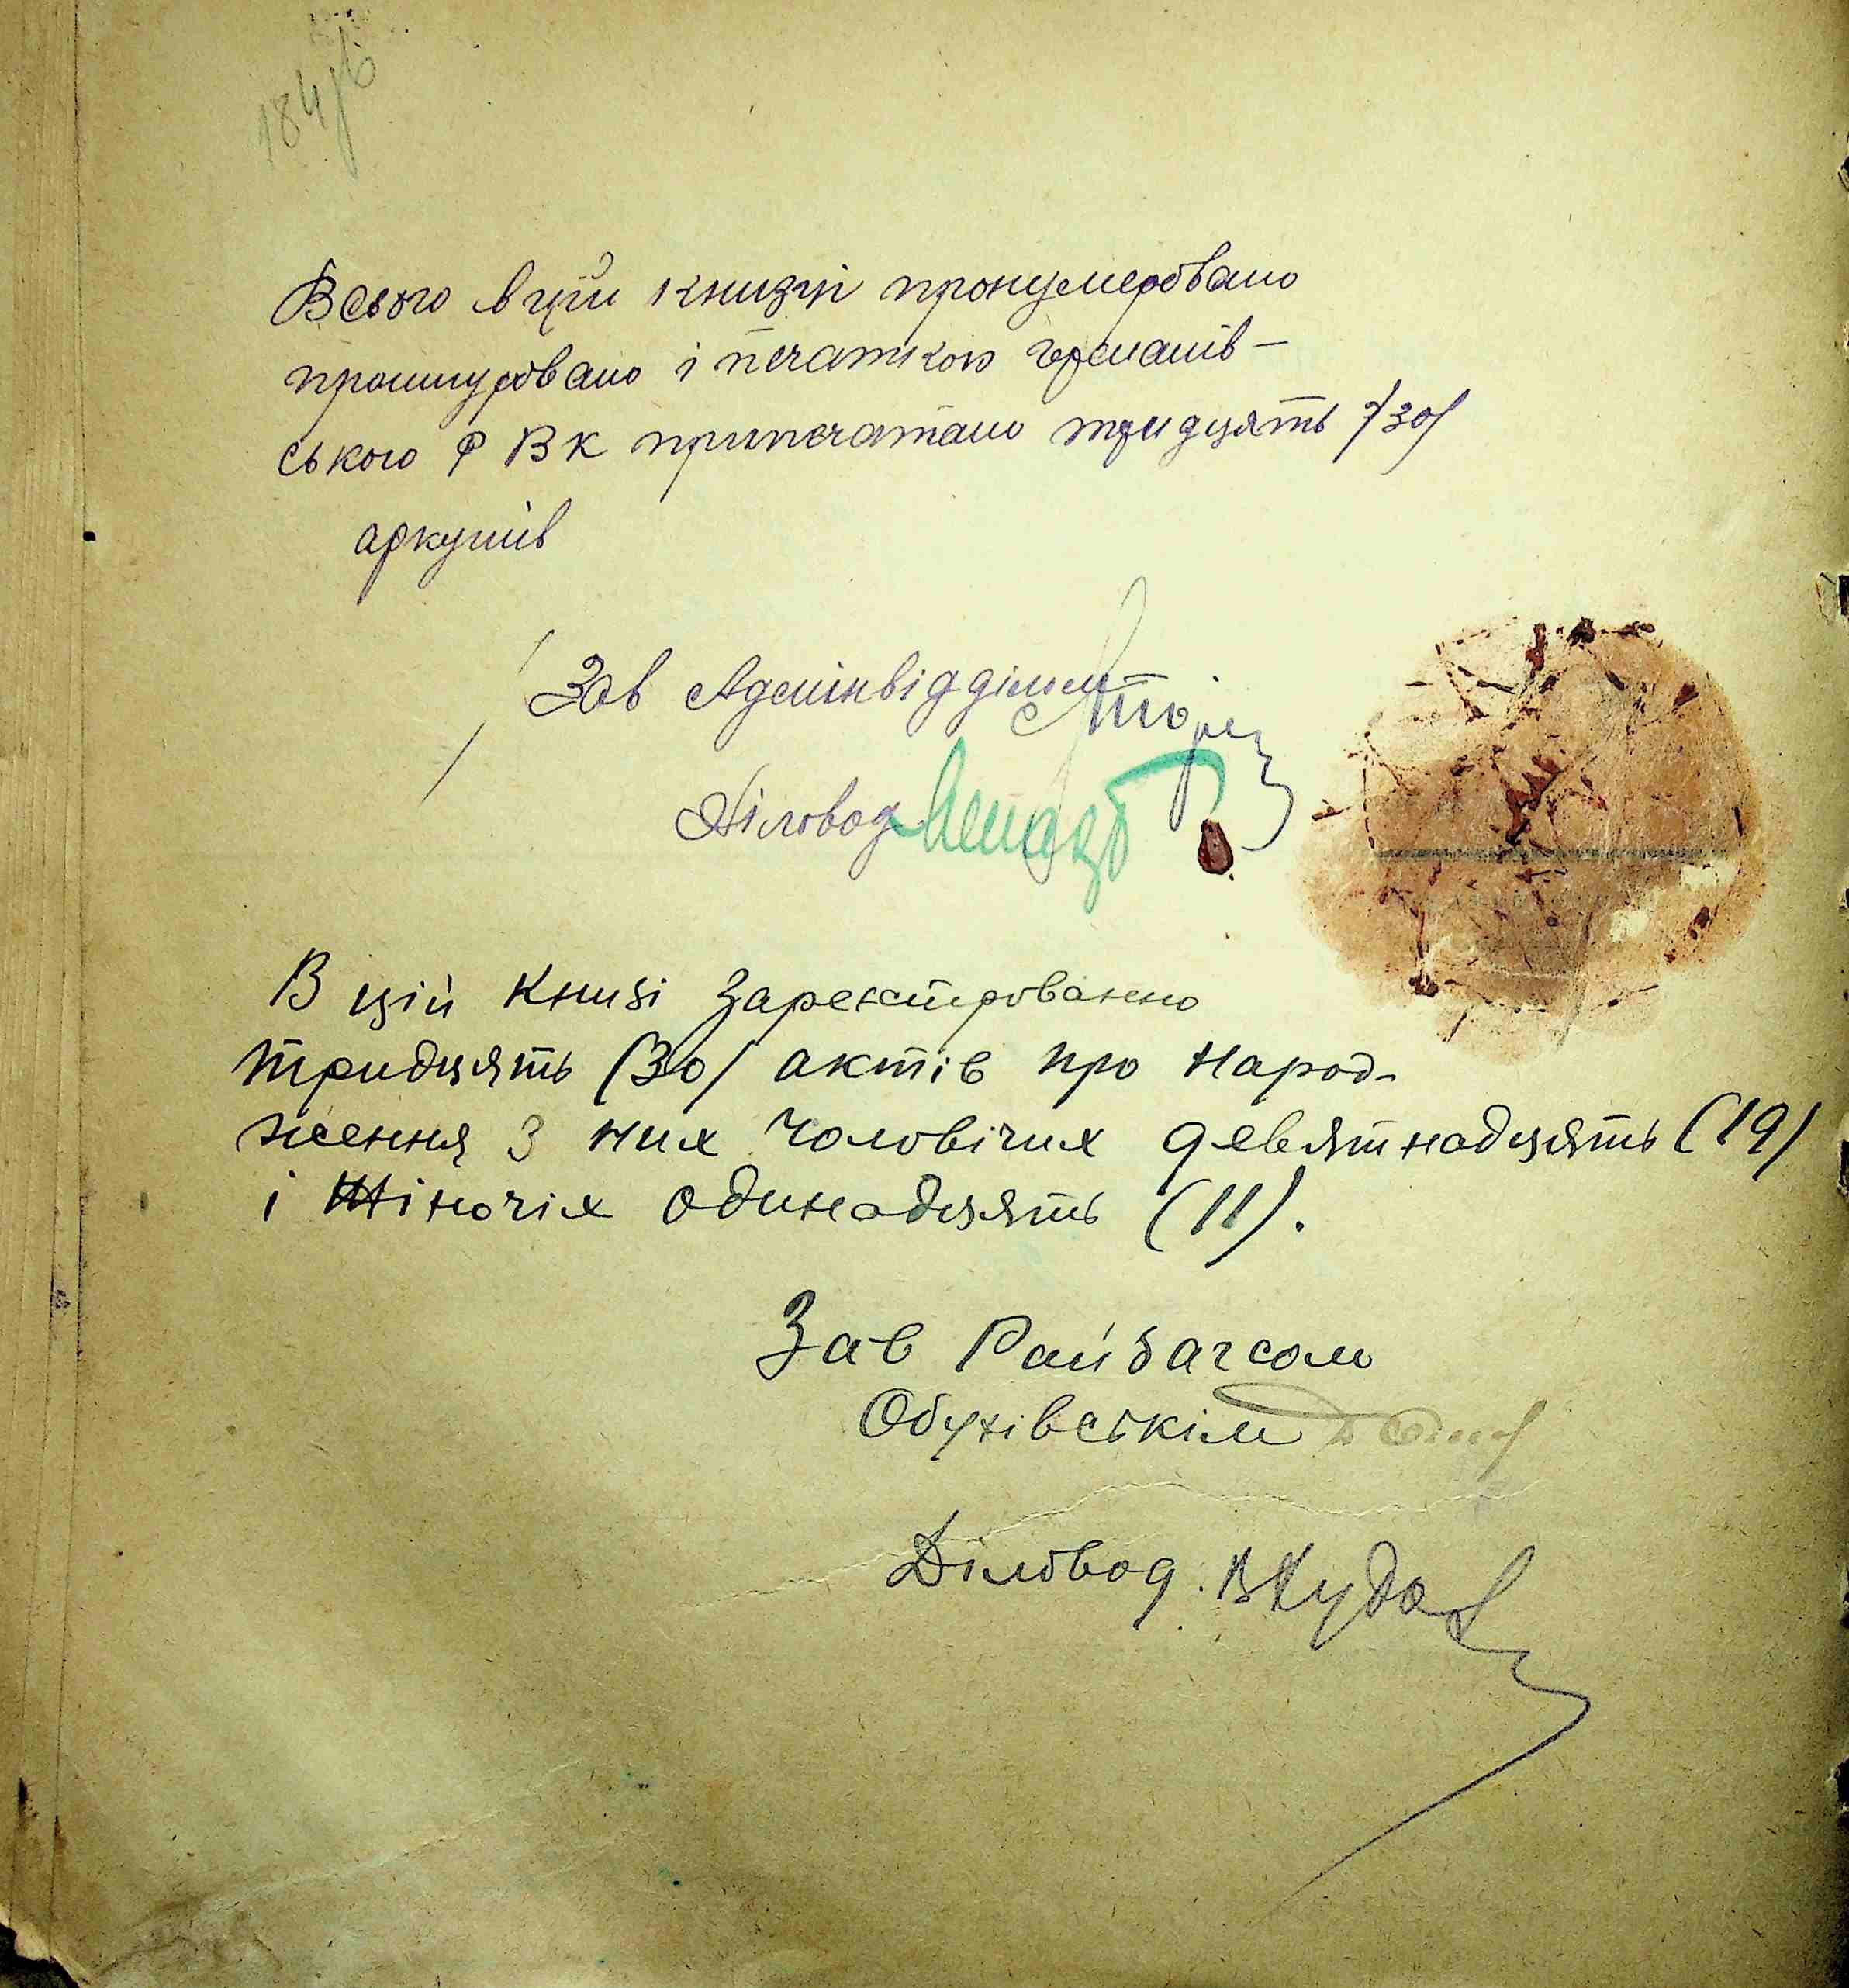 Всього в цій книзі пронумеровано
прошнуровано і печаткою германів-
ського РВК припечатано тридцять /30/
аркушів
Зав Адмінвідділом
Діловод
В цій книзі зарекстрованно
тридцять (30) актів про народ-
ження з них чоловічих девятнадцять (19)
і жіночіх одинадцять (11).
Зав Райзагсом
Обухівскім
Діловод.